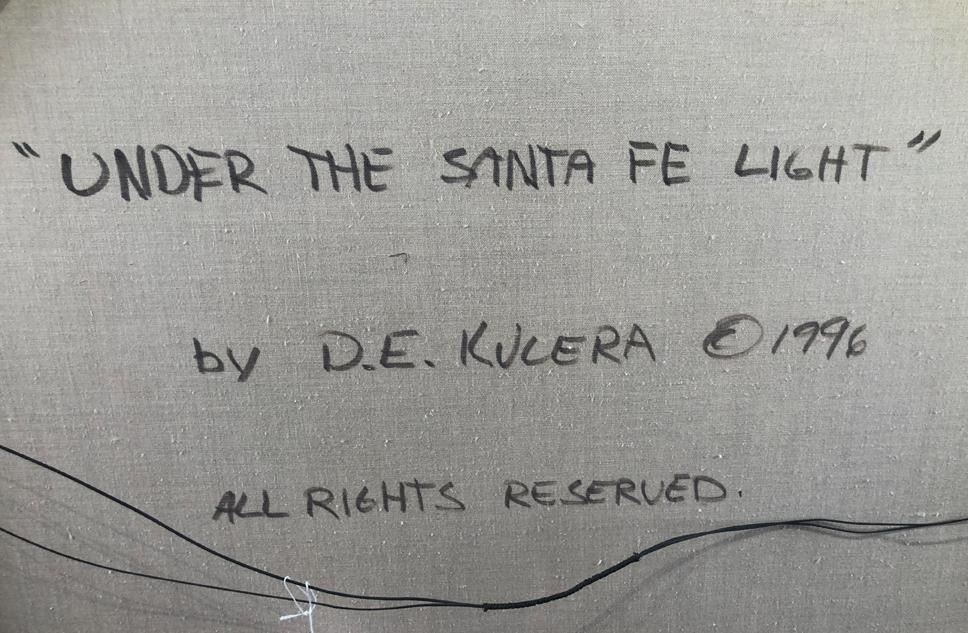 "UNDER THE SANTA FE LIGHT"
by D.E. KUCERA © 1996
ALL RIGHTS RESERVED.